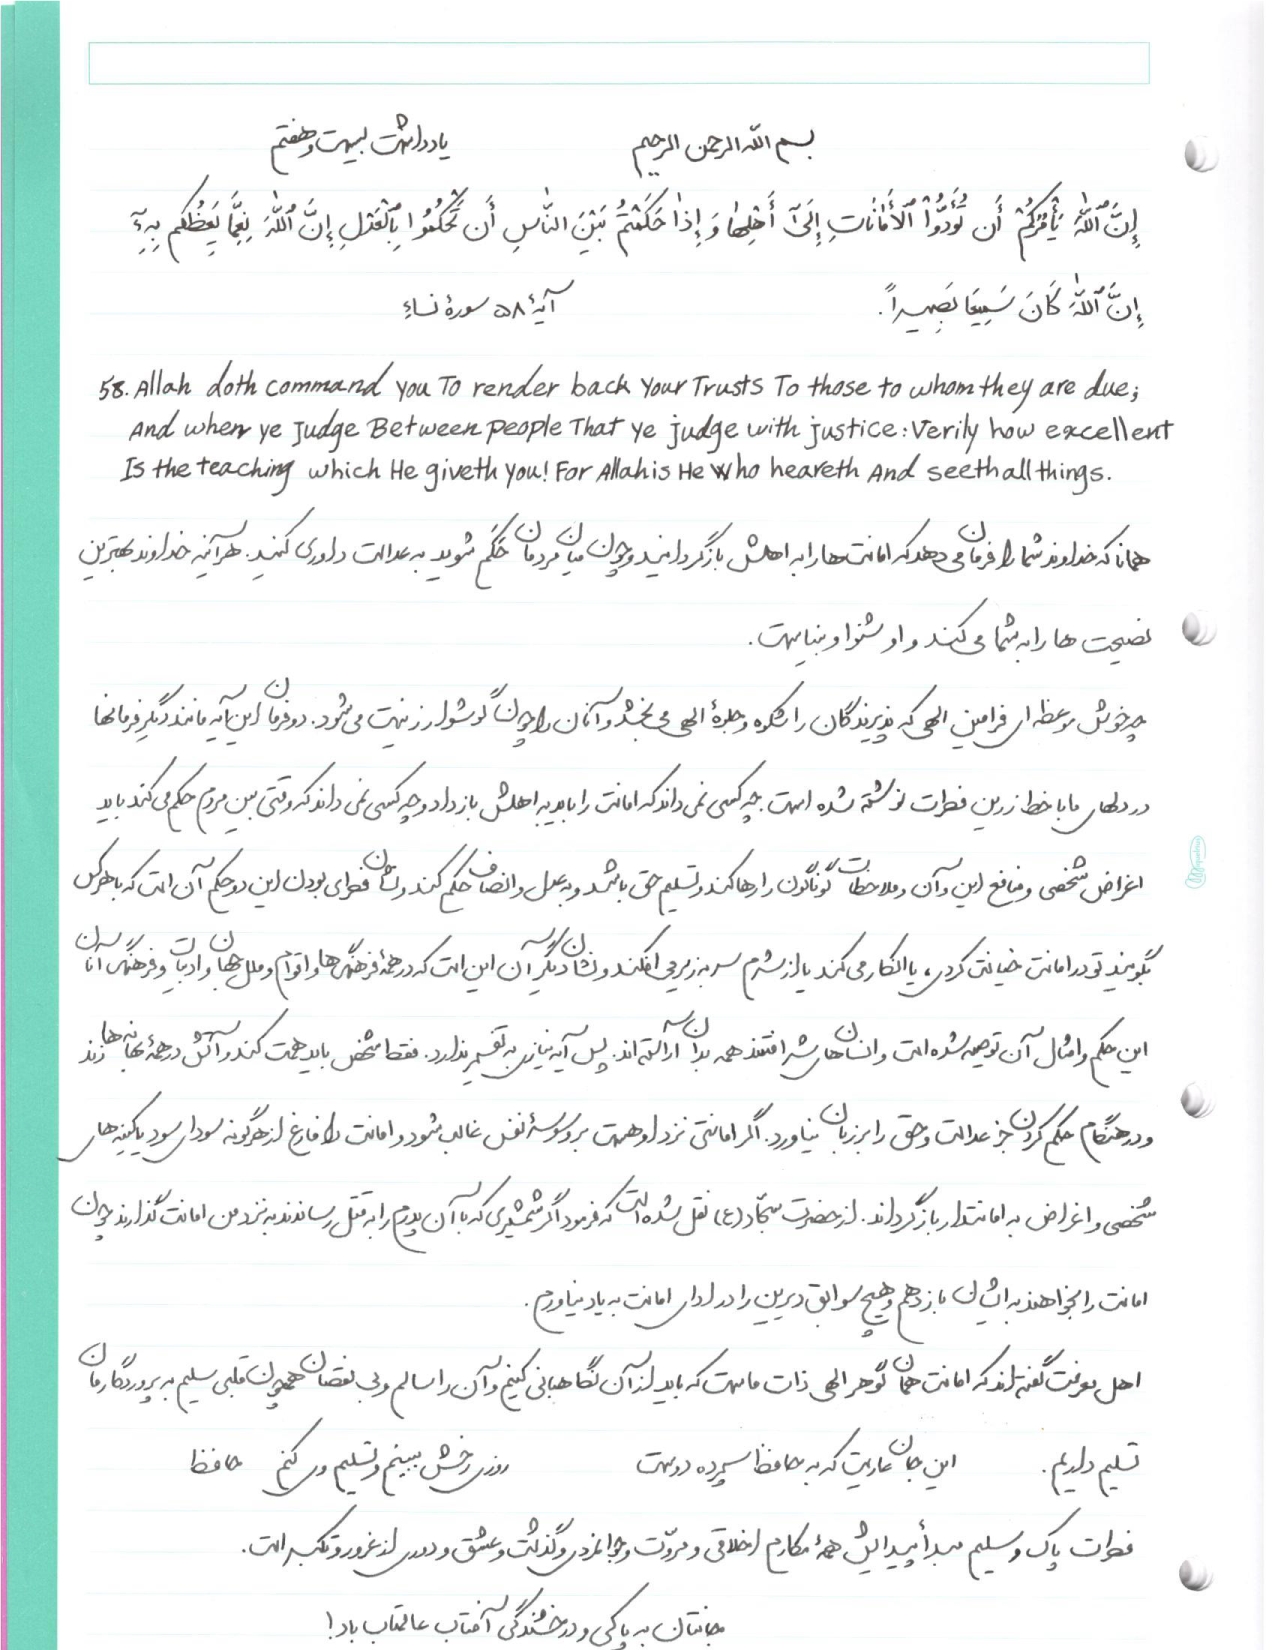 بسم الله الرحمن الرحیم یادداشت بیست و هفتم
إِنَّ ٱللَّهَ يَأْمُرُكُمْ أَن تُؤَدُّوا۟ ٱلْأَمَانَاتِ إِلَىٰٓ أَهْلِهَا وَ إِذَا حَكَمْتُمْ بَيْنَ النَّاسِ أَن تَحْكُمُوا بِٱلْعَدْلِ إِنَّ ٱللَّهَ نِعِمَّا يَعِظُكُم بِهِۦٓ
إِنَّ ٱللَّهَ كَانَ سَمِيعًا بَصِيراً. آیهٔ ۵۸ سورهٔ نساء
58. Allah doth command you To render back Your Trusts To those to whom they are due;
And when ye Judge Between people That ye judge with justice: Verily how excellent
Is the teaching which He giveth You! For Allah is He Who heareth And seeth all things.
همانا که خداوند شما را فرمان می دهد که امانت ها را به اهلش بازگردانید و چون میان مردمان حَکَم شوید به عدالت داوری کنید. هرآینه خداوند بهترین
نصیحت ها را به شما می کند و او شنوا و بیناست.
چه خوش موعظه ای فرامین الهی که پذیرندگان را شکوه و جلوهٔ الهی می بخشد و آنان را چون گوشوار زینت می شود. دو فرمان این آیه مانند دیگر فرمانها
در دلهای ما با خط زرین فطرت نوشته شده است. چه کسی نمی داند که امانت را باید به اهلش باز داد و چه کسی نمی داند که وقتی بین مردم حکم می کند باید
اغراض شخصی و منافع این و آن و ملاحظات گوناگون را رها کند و تسلیم حق باشد و به عدل و انصاف حکم کند و نشان فطری بودن این دو حکم آن است که با هر کس
بگویند تو در امانت خیانت کردی، یا انکار می کند یا از شرم سر به زیر می افکند و نشان دیگر آن این است که در همهٔ فرهنگ ها و اقوام و ملل جهان و ادبیات و فرهنگ آنان
این حکم و امثال آن توصیه شده است و انسان های شرافتمند همه بدان آراسته اند. پس آیه نیازی به تفسیر ندارد. فقط شخص باید همت کند و آتش در همهٔ بهانه ها زند
و در هنگام حکم کردن جز عدالت و حق را بر زبان نیاورد. اگر امانتی نزد او هست بر وسوسهٔ نفس غالب شود و امانت را فارغ از هرگونه سودای سود یا کینه های
شخصی و اغراض به امانتدار بازگرداند. از حضرت سجّاد (ع) نقل شده است که فرمود اگر شمشیری که با آن پدرم را به قتل رساندند به نزد من امانت گذارند چون
امانت را بخواهند به ایشان باز دهم و هیچ سوابق دیرین را در ادای امانت به یاد نیاورم.
اهل معرفت گفته اند که امانت همان گوهر الهی ذات ماست که باید از آن نگاهبانی کنیم و آن را سالم و بی نقصان همچون قلبی سلیم به پروردگارمان
تسلیم داریم. این جان عاریت که به حافظ سپرده دوست روزی رخش ببینم و تسلیم وی کنم حافظ
فطرت پاک و سلیم مبدأ پیدایش همهٔ مکارم اخلاقی و مروّت و جوانمردی و گذشت و عشق و دوری از غرور و تکبر است.
جانتان به پاکی و درخشندگی آفتاب عالمتاب باد!